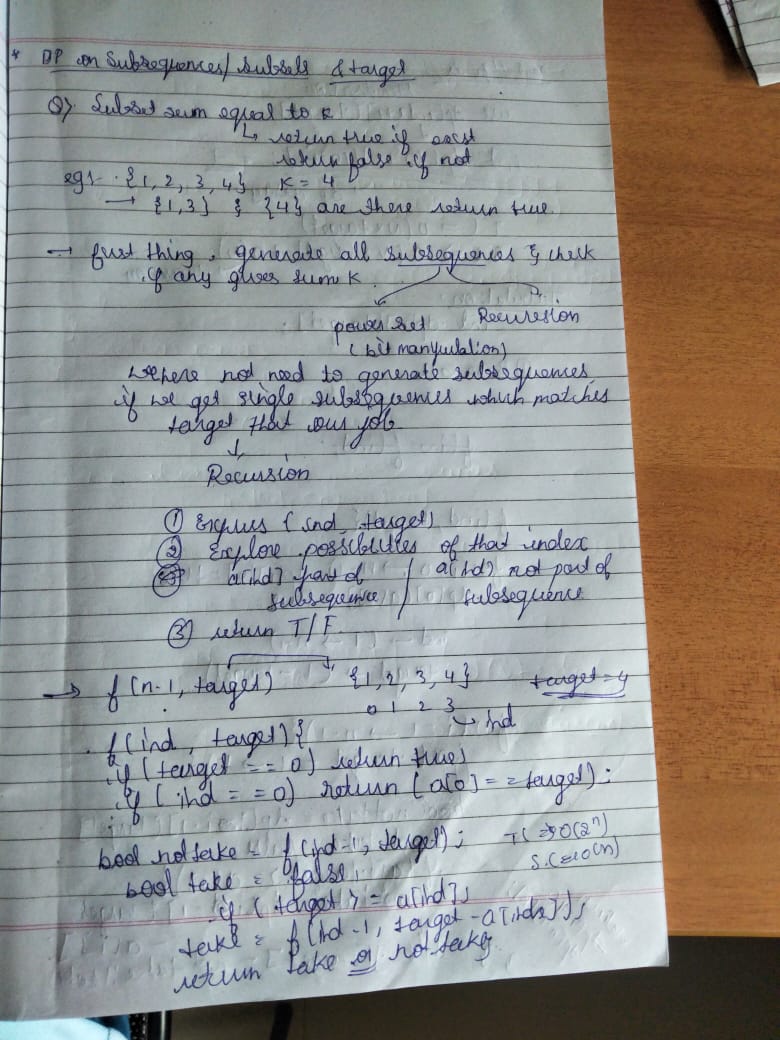 * DP on Subsequences/ subsets & target
Q) Subset sum equal to k
↳ return true if exist
return false if not
eg1- {1, 2, 3, 4} K = 4
→ {1,3} & {4} are there return true
→ first thing, generate all subsequences & check
if any gives sum K.
power set Recursion
(bit manipulation)
where not need to generate subsequences
if we get single subsequences which matches
target that our job
↓
Recursion
① Express (ind, target)
② Explore possibilities of that index
a[ind] part of / a[ind] not part of
subsequence / subsequence
③ return T/F.
→ f(n-1, target) {1, 2, 3, 4} target=4
0 1 2 3
↳ ind
f(ind, target){
if (target == 0) return true;
if (ind == 0) return (a[0] == target);
bool nottake = f(ind-1, target); T(⇒O(2ⁿ)
bool take = false; S.C⇒O(n)
if (target >= a[ind])
take = f(ind-1, target-a[ind]);
return take or nottake}